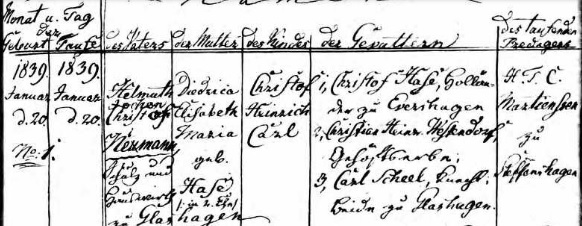 Monat u. Tag
der
Geburt Taufe
des Vaters
der Mutter
des Kindes
der Gevattern
des taufenden
Predigers
1839.
Januar
d. 20.
No. 1.
1839.
Januar
d. 20.
Helmuth
Jochen
Christoph
Hermann,
Schulz und
zu Glashagen
Diedrica
Elisabeth
Maria
geb.
Hase
(: in 2. Ehe)
Christof
Heinrich
Carl
1, Christof Hase, Hollän-
der zu Evershagen
2, Christian Heinr. Westendorf,
3, Carl Scheel, Knecht,
beide zu Glashagen.
H. T. C.
Martienssen
zu
Steffenshagen